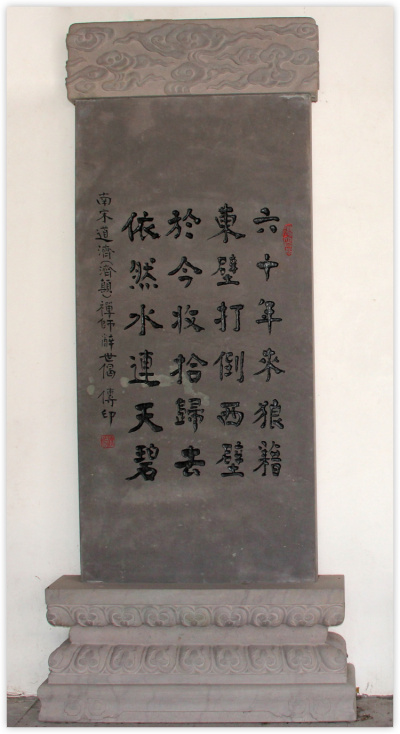 六十年来狼藉
東壁打倒西壁
於今收拾歸去
依然水連天碧
南宋道濟(濟顛)禪師辭世偈 傳印